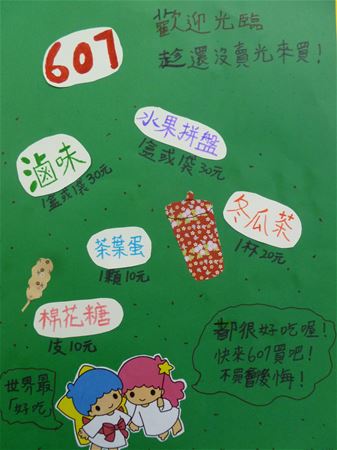 607
歡迎光臨
趁還沒賣光來買！
水果拼盤
1盒或1袋30元
滷味
1盒或1袋30元
冬瓜茶
1杯20元
茶葉蛋
1顆10元
棉花糖
1支10元
都很好吃喔！
快來607買吧！
不買會後悔！
世界最
「好吃」